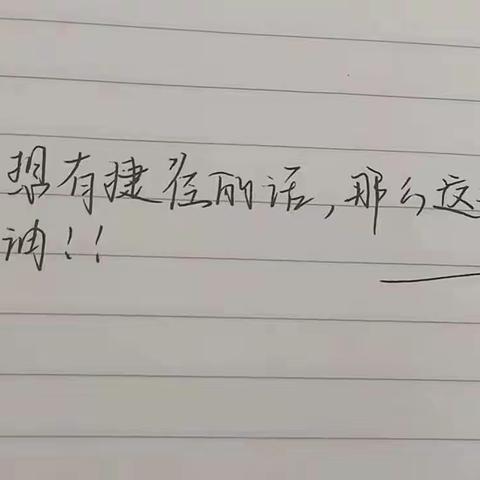 想有捷径的话,那么这
油!!